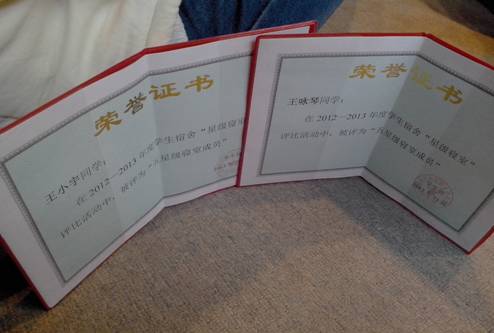 荣誉证书
王小宇同学：
在2012—2013年度学生宿舍“星级寝室”
评比活动中，被评为“五星级寝室成员”
荣誉证书
王咏琴同学：
在2012—2013年度学生宿舍“星级寝室”
评比活动中，被评为“五星级寝室成员”